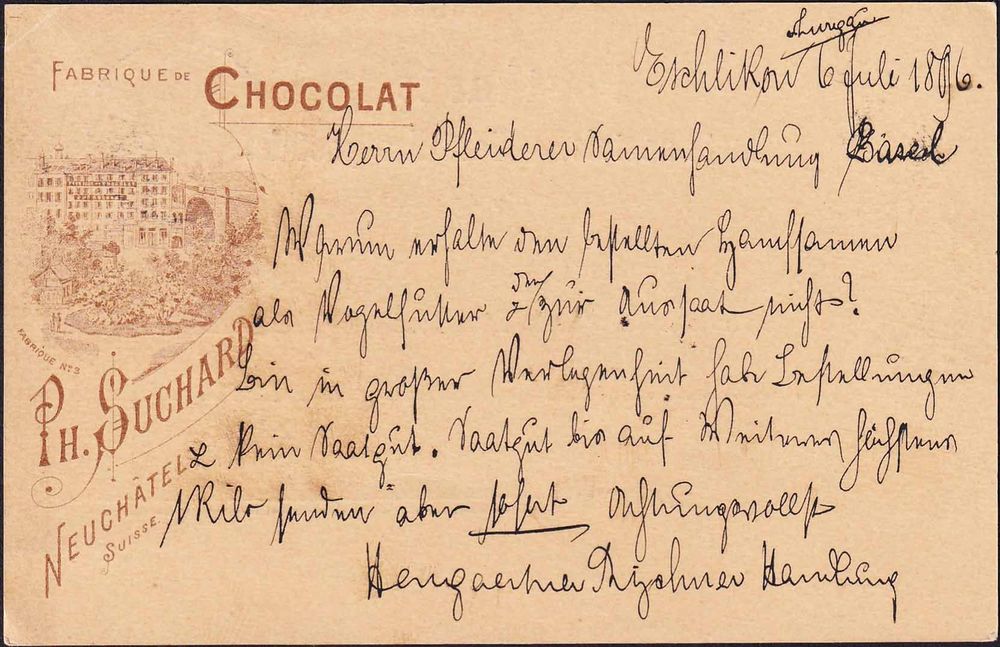 FABRIQUE DE CHOCOLAT
FABRIQUE Nº 3
PH. SUCHARD
NEUCHÂTEL
SUISSE.
Thurgau
Eschlikon 6 Juli 1896.
Herrn Pfleiderer Samenhandlung Basel
Warum erhalte den bestellten Hanfsamen
als Vogelfutter & den zur Aussaat nicht?
Bin in großer Verlegenheit habe Bestellungen
& kein Saatgut. Saatgut bis auf Weiteres höchstens
1 Kilo senden aber sofort Achtungsvollst
Handlung